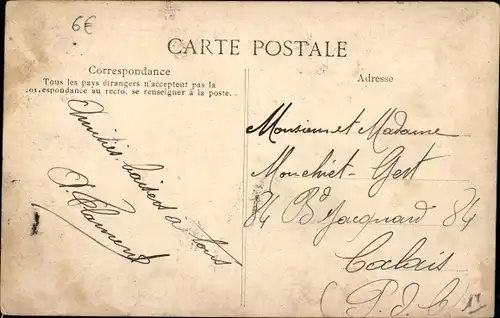 6€
CARTE POSTALE
Correspondance
Tous les pays étrangers n'acceptent pas la
correspondance au recto, se renseigner à la poste.
Amitiés, baisers à tous
Clament
Adresse
Monsieur et Madame
Mouchiet-Gest
84 Bd Jacquard 84
Calais
(P. d. C.)